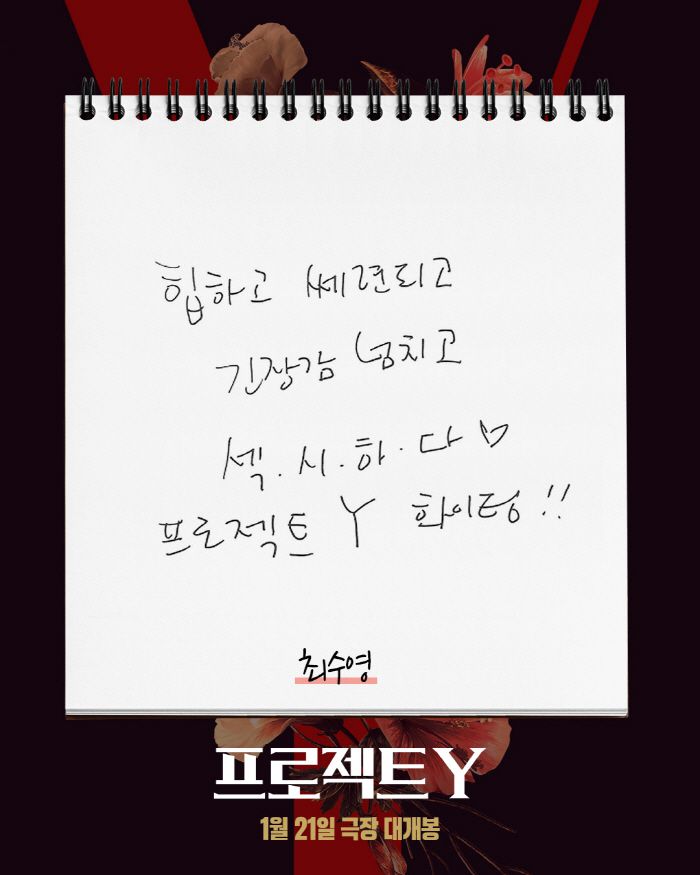 힙하고 쎄련되고
긴장감 넘치고
섹.시.하.다♡
프로젝트 Y 화이팅!!
최수영
프로젝트 Y
1월 21일 극장 대개봉